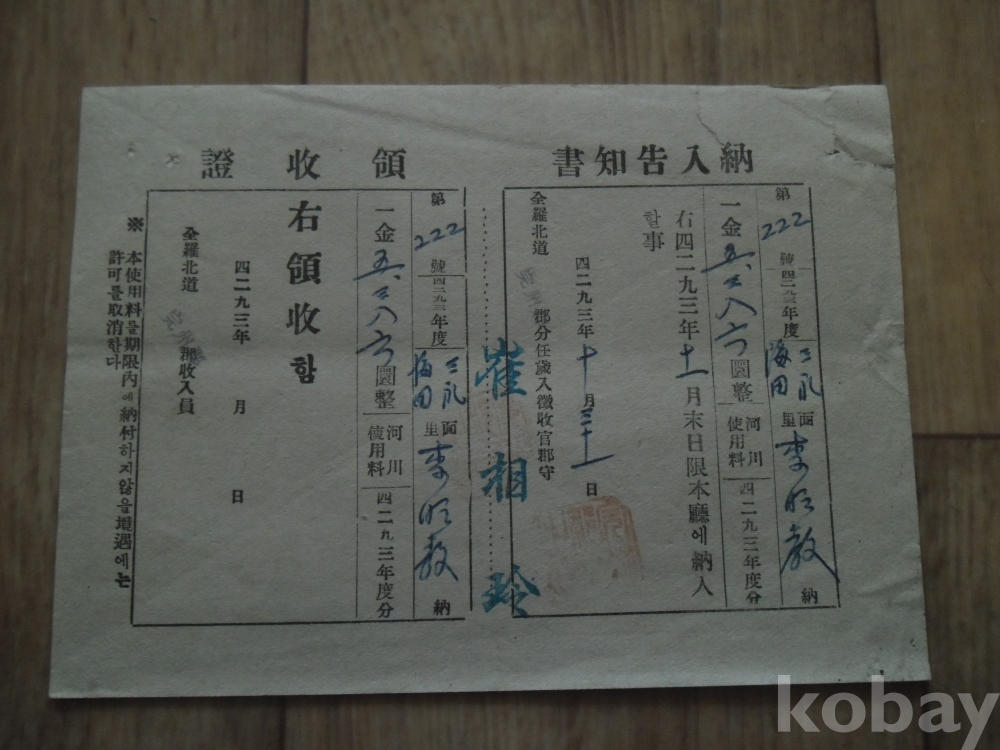 納入告知書
第222號 四二九三年度 三礼面 海田里 李 納
一金五、三八六圓整 河川使用料 四二九三年度分
右四二九三年十一月末日限本廳에納入
할事
四二九三年十月三十一日
全羅北道 郡分任歲入徵收官郡守
崔相玲
領收證
第222號 四二九三年度 三礼面 海田里 李 納
一金五、三八六圓整 河川使用料 四二九三年度分
右領收함
四二九三年 月 日
全羅北道 郡收入員
※ 本使用料를期限內에納付하지않을境遇에는
許可를取消한다
kobay